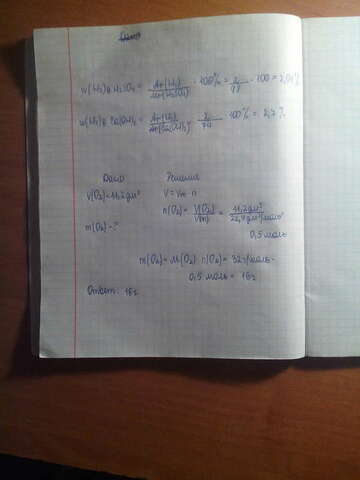 w(H₂)в H₂SO₄ = Ar(H₂) / Mr(H₂SO₄) · 100% = 2 / 98 · 100 = 2,04%
w(H₂)в Ca(OH)₂ = Ar(H₂) / Mr(Ca(OH)₂) = 2 / 74 · 100% = 2,7%
Дано Решение
V(O₂)=11,2дм³ V = Vm n
m(O₂)-? n(O₂) = V(O₂) / V(m) = 11,2дм³ / 22,4дм³/моль =
0,5моль
m(O₂) = M(O₂) n(O₂) = 32г/моль ·
0,5моль = 16г
Ответ: 16г